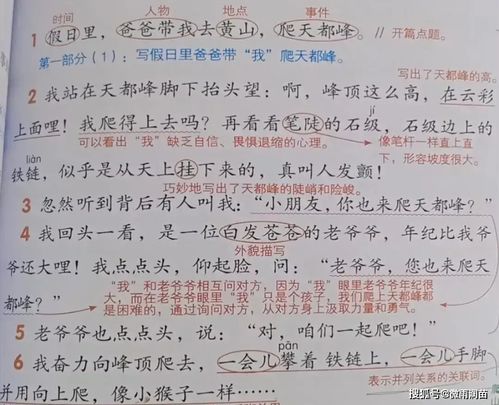 时间 人物 地点 事件
1 假日里，爸爸带我去黄山，爬天都峰。 // 开篇点题。
第一部分（1）：写假日里爸爸带“我”爬天都峰。
写出了天都峰的高。
2 我站在天都峰脚下抬头望：啊，峰顶这么高，在云彩
jí
上面哩！我爬得上去吗？再看看笔陡的石级，石级边上的
可以看出“我”缺乏自信、畏惧退缩的心理。 像笔杆一样直上直
liàn 下，形容坡度很大。
铁链，似乎是从天上挂下来的，真叫人发颤！
巧妙地写出了天都峰的陡峭和险峻。
3 忽然听到背后有人叫我：“小朋友，你也来爬天都峰？”
4 我回头一看，是一位白发苍苍的老爷爷，年纪比我爷
外貌描写
爷还大哩！我点点头，仰起脸，问：“老爷爷，您也来爬天
“我”和老爷爷相互问对方，因为“我”眼里老爷爷年纪很
都峰？” 大，而在老爷爷眼里“我”只是个孩子，我们爬上天都峰都
是困难的，通过询问对方，从对方身上汲取力量和勇气。
5 老爷爷也点点头，说：“对，咱们一起爬吧！”
pān
6 我奋力向峰顶爬去，一会儿攀着铁链上，一会儿手脚
表示并列关系的关联词。
并用向上爬，像小猴子一样……
搜狐号@微雨润苗